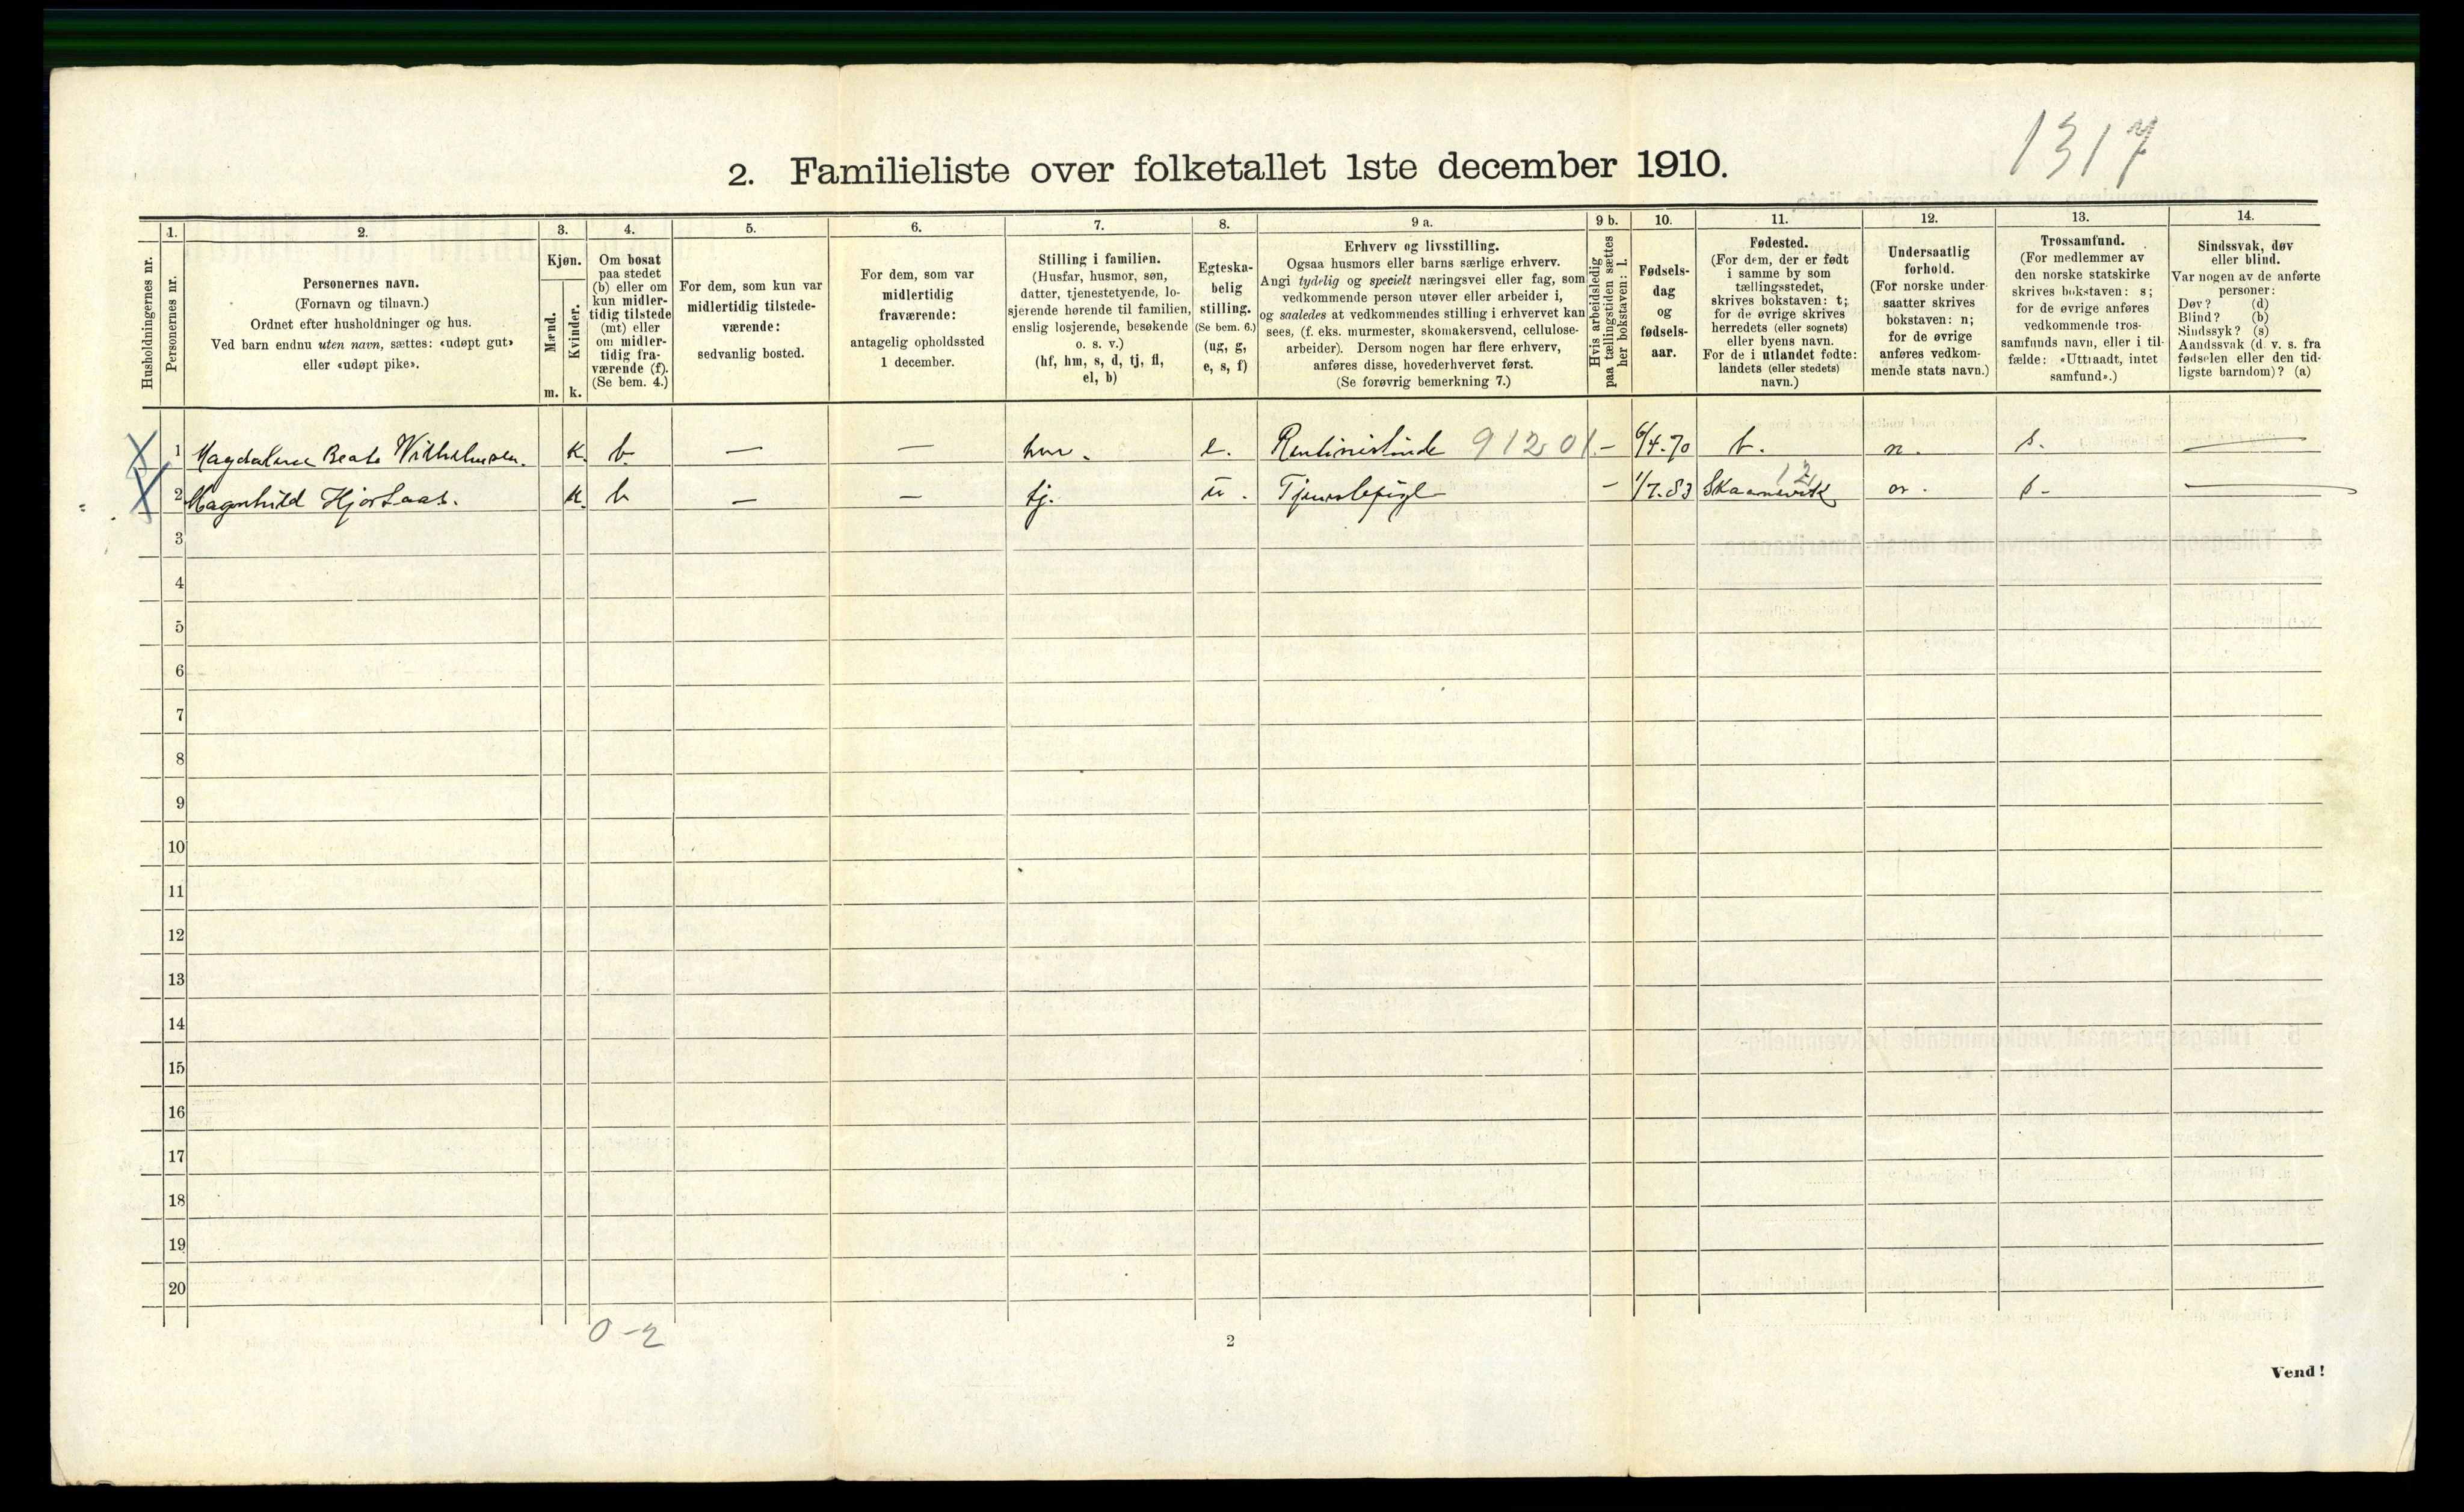 1317
2. Familieliste over folketallet 1ste december 1910.
Husholdningernes nr.
1.
Personernes nr.
2.
Personernes navn.
(Fornavn og tilnavn.)
Ordnet efter husholdninger og hus.
Ved barn endnu uten navn, sættes: «udøpt gut»
eller «udøpt pike».
3.
Kjøn.
Mænd.
Kvinder.
m. k.
4.
Om bosat
paa stedet
(b) eller om
kun midler-
tidig tilstede
(mt) eller
om midler-
tidig fra-
værende (f).
(Se bem. 4.)
5.
For dem, som kun var
midlertidig tilstede-
værende:
sedvanlig bosted.
6.
For dem, som var
midlertidig
fraværende:
antagelig opholdssted
1 december.
7.
Stilling i familien.
(Husfar, husmor, søn,
datter, tjenestetyende, lo-
sjerende hørende til familien,
enslig losjerende, besøkende
o. s. v.)
(hf, hm, s, d, tj, fl,
el, b)
8.
Egteska-
belig
stilling.
(Se bem. 6.)
(ug, g,
e, s, f)
9 a.
Erhverv og livsstilling.
Ogsaa husmors eller barns særlige erhverv.
Angi tydelig og specielt næringsvei eller fag, som
vedkommende person utøver eller arbeider i,
og saaledes at vedkommendes stilling i erhvervet kan
sees, (f. eks. murmester, skomakersvend, cellulose-
arbeider). Dersom nogen har flere erhverv,
anføres disse, hovederhvervet først.
(Se forøvrig bemerkning 7.)
9 b.
Hvis arbeidsledig
paa tællingstiden sættes
her bokstaven: l.
10.
Fødsels-
dag
og
fødsels-
aar.
11.
Fødested.
(For dem, der er født
i samme by som
tællingsstedet,
skrives bokstaven: t;
for de øvrige skrives
herredets (eller sognets)
eller byens navn.
For de i utlandet fødte:
landets (eller stedets)
navn.)
12.
Undersaatlig
forhold.
(For norske under-
saatter skrives
bokstaven: n;
for de øvrige
anføres vedkom-
mende stats navn.)
13.
Trossamfund.
(For medlemmer av
den norske statskirke
skrives bokstaven: s;
for de øvrige anføres
vedkommende tros-
samfunds navn, eller i til-
fælde: «Uttraadt, intet
samfund».)
14.
Sindssvak, døv
eller blind.
Var nogen av de anførte
personer:
Døv? (d)
Blind? (b)
Sindssyk? (s)
Aandssvak (d. v. s. fra
fødselen eller den tid-
ligste barndom)? (a)
X 1 Magdalena Beate Wilhelmsen. k. b. — — hm. e. Rentierinde 91201 — 6/4.70 t. n. s. —
X 2 Magnhild Hjortaas. k. b — — tj. u. Tjenestepige — 1/7.83 Skaanevik 12 n. s. —
3
4
5
6
7
8
9
10
11
12
13
14
15
16
17
18
19
20
0-2
2
Vend!